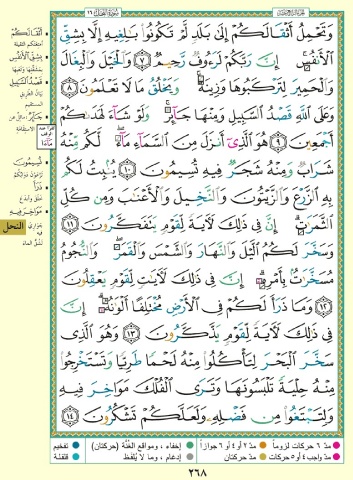 سُورَةُ النَّحْلِ ١٦
وَتَحْمِلُ أَثْقَالَكُمْ إِلَىٰ بَلَدٍ لَّمْ تَكُونُوا۟ بَـٰلِغِيهِ إِلَّا بِشِقِّ
ٱلْأَنفُسِ ۚ إِنَّ رَبَّكُمْ لَرَءُوفٌ رَّحِيمٌ ٧ وَٱلْخَيْلَ وَٱلْبِغَالَ
وَٱلْحَمِيرَ لِتَرْكَبُوهَا وَزِينَةً ۚ وَيَخْلُقُ مَا لَا تَعْلَمُونَ ٨
وَعَلَى ٱللَّهِ قَصْدُ ٱلسَّبِيلِ وَمِنْهَا جَآئِرٌ ۚ وَلَوْ شَآءَ لَهَدَىٰكُمْ
أَجْمَعِينَ ٩ هُوَ ٱلَّذِىٓ أَنزَلَ مِنَ ٱلسَّمَآءِ مَآءً ۖ لَّكُم مِّنْهُ
شَرَابٌ وَمِنْهُ شَجَرٌ فِيهِ تُسِيمُونَ ١٠ يُنۢبِتُ لَكُم
بِهِ ٱلزَّرْعَ وَٱلزَّيْتُونَ وَٱلنَّخِيلَ وَٱلْأَعْنَـٰبَ وَمِن كُلِّ
ٱلثَّمَرَٰتِ ۗ إِنَّ فِى ذَٰلِكَ لَـَٔايَةً لِّقَوْمٍ يَتَفَكَّرُونَ ١١
وَسَخَّرَ لَكُمُ ٱلَّيْلَ وَٱلنَّهَارَ وَٱلشَّمْسَ وَٱلْقَمَرَ ۖ وَٱلنُّجُومُ
مُسَخَّرَٰتٌۢ بِأَمْرِهِۦٓ ۗ إِنَّ فِى ذَٰلِكَ لَـَٔايَـٰتٍ لِّقَوْمٍ يَعْقِلُونَ
١٢ وَمَا ذَرَأَ لَكُمْ فِى ٱلْأَرْضِ مُخْتَلِفًا أَلْوَٰنُهُۥٓ ۗ إِنَّ
فِى ذَٰلِكَ لَـَٔايَةً لِّقَوْمٍ يَذَّكَّرُونَ ١٣ وَهُوَ ٱلَّذِى
سَخَّرَ ٱلْبَحْرَ لِتَأْكُلُوا۟ مِنْهُ لَحْمًا طَرِيًّا وَتَسْتَخْرِجُوا۟
مِنْهُ حِلْيَةً تَلْبَسُونَهَا وَتَرَى ٱلْفُلْكَ مَوَاخِرَ فِيهِ
وَلِتَبْتَغُوا۟ مِن فَضْلِهِۦ وَلَعَلَّكُمْ تَشْكُرُونَ ١٤
أَثْقَالَكُمْ
أمتعتكم الثقيلة
بِشِقِّ الأنفس
بمشقتها وتعبها
قصد السبيل
بيان الطريق
المستقيم
جَائِر
تسيمون
ذَرَأَ
خلق وأبدع
مواخر فيه
جواري فيه
تشق الماء
النحل
مدّ ٦ حركات لزوماً
مدّ ٢ أو ٤ أو ٦ جوازاً
إخفاء، ومواقع الغُنَّة (حركتان)
تفخيم
مدّ واجب ٤ أو ٥ حركات
مدّ حركتان
إدغام، وما لا يُلفظ
قلقلة
٢٦٨